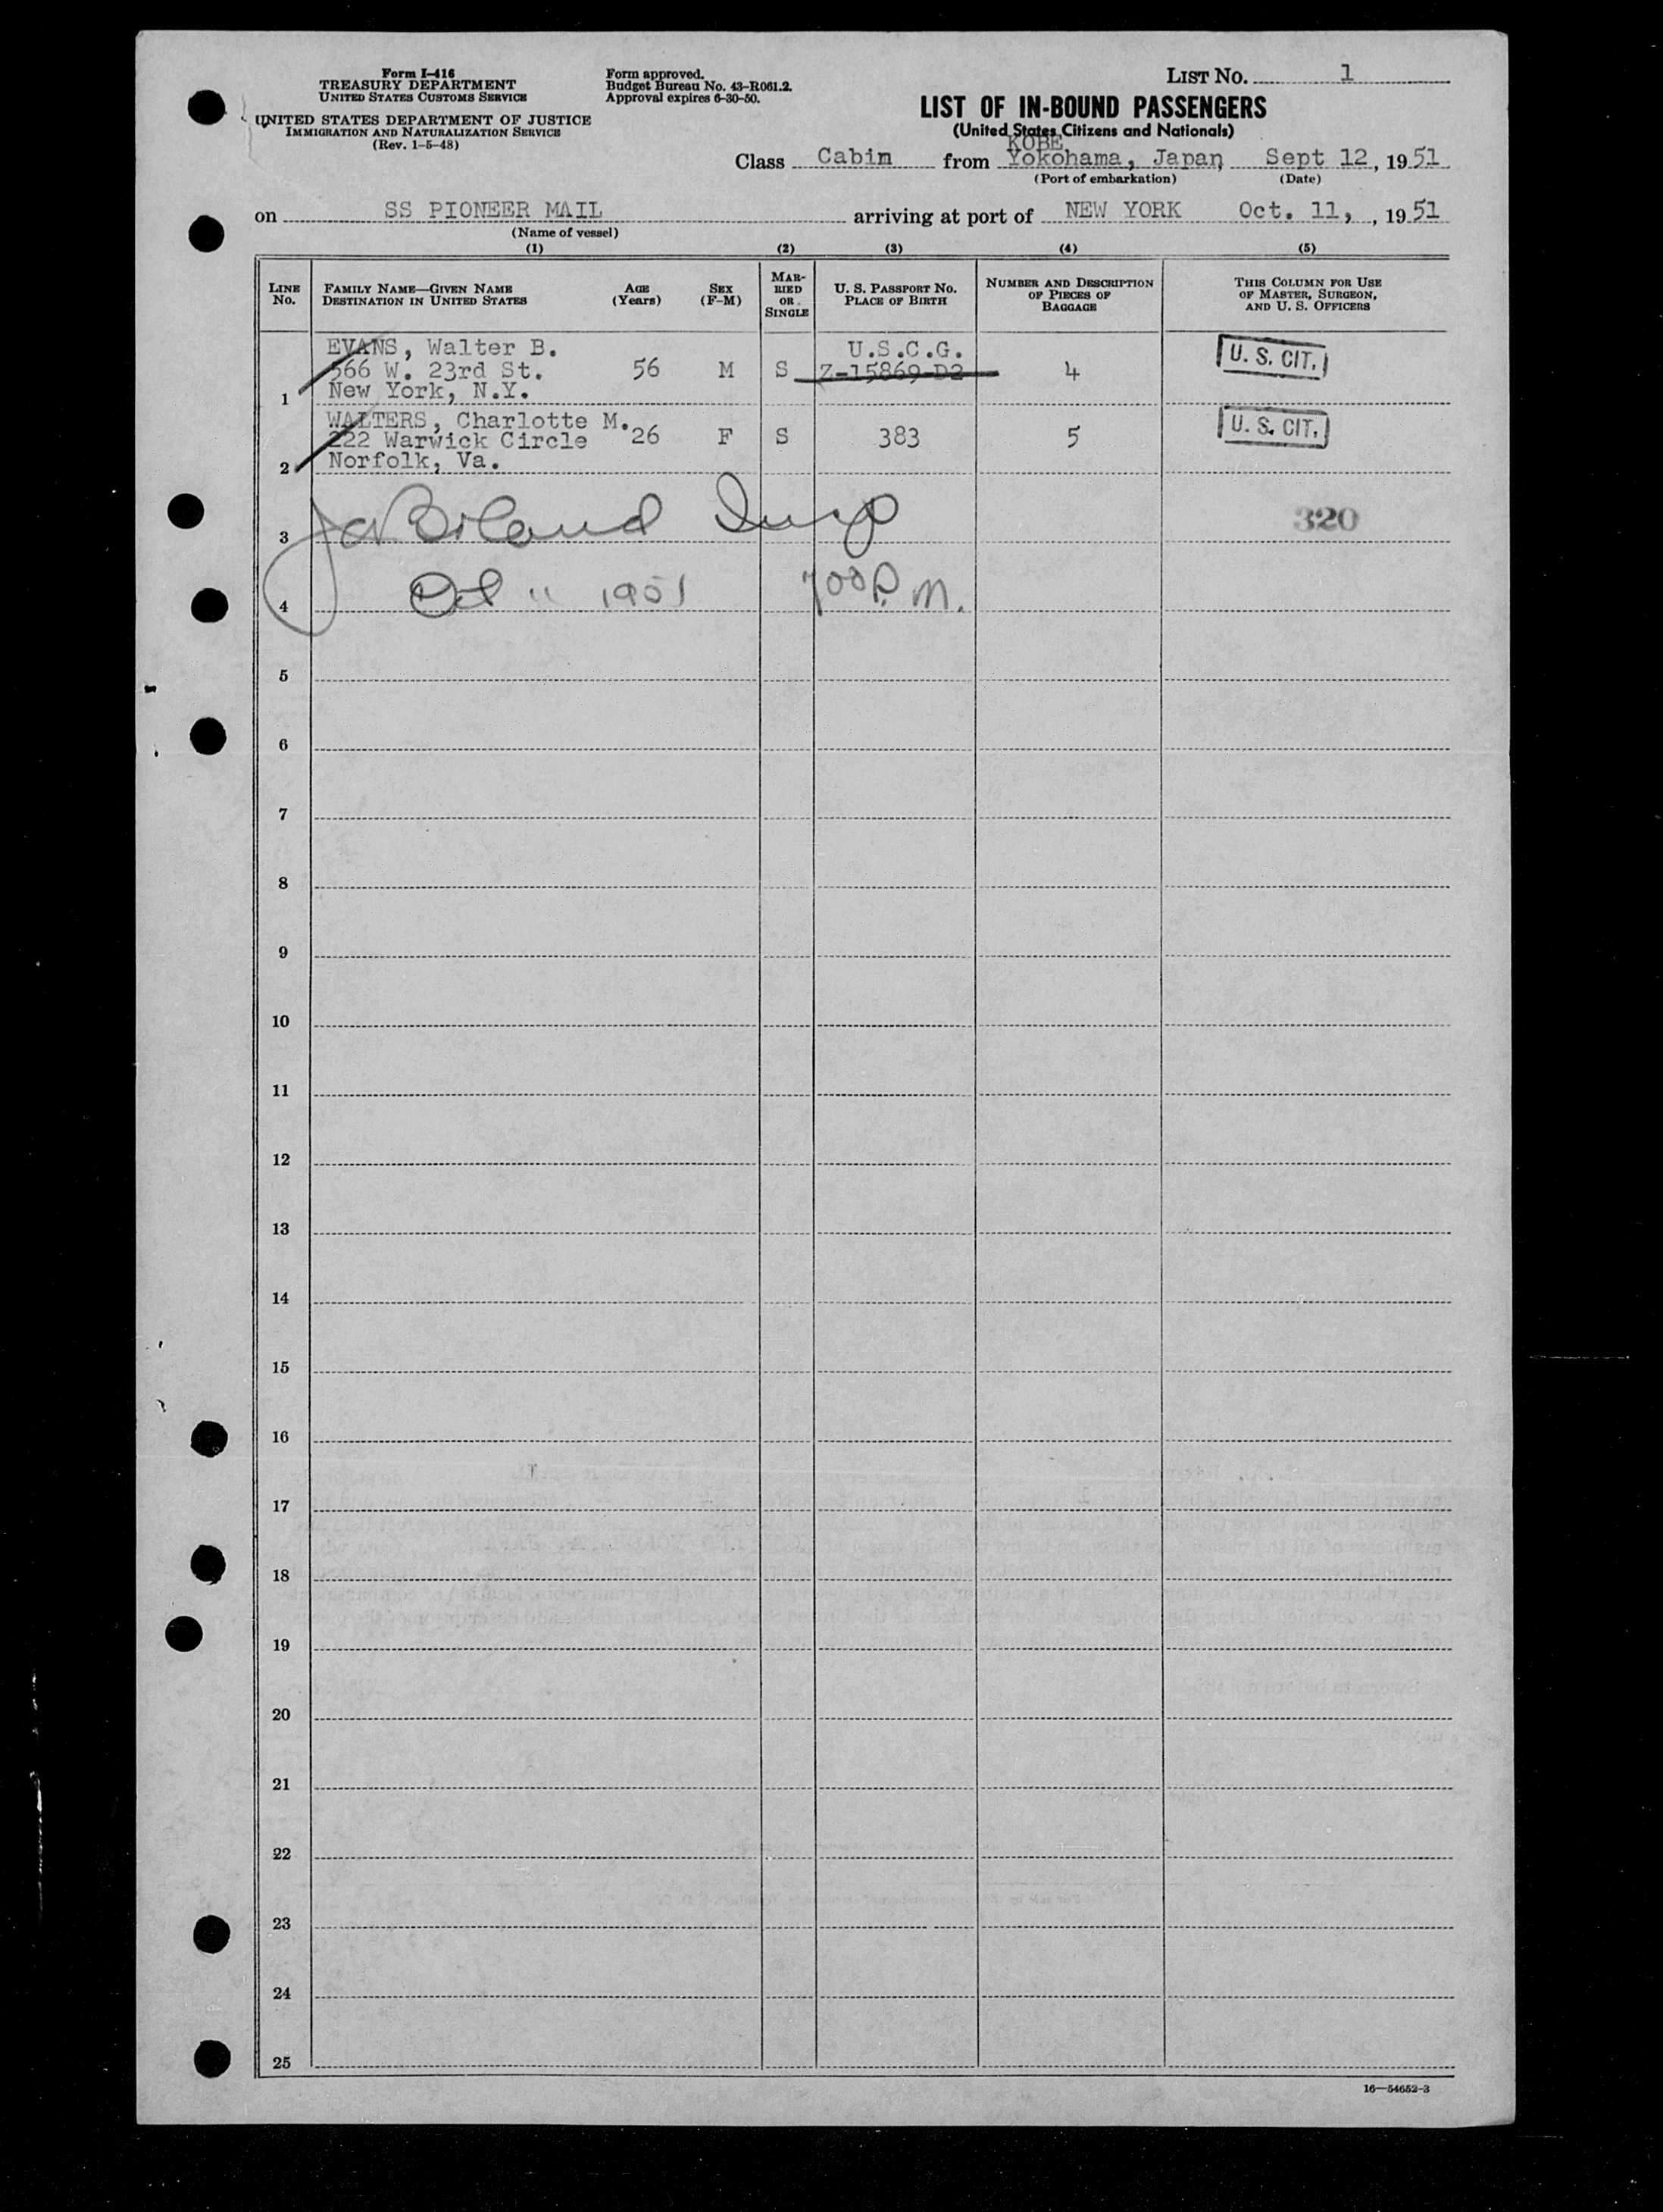 Form I-416
TREASURY DEPARTMENT
UNITED STATES CUSTOMS SERVICE
UNITED STATES DEPARTMENT OF JUSTICE
IMMIGRATION AND NATURALIZATION SERVICE
(Rev. 1-5-48)
Form approved.
Budget Bureau No. 43-R061.2.
Approval expires 6-30-50.
LIST No. 1
LIST OF IN-BOUND PASSENGERS
(United States Citizens and Nationals)
KOBE
Class Cabin from Yokohama, Japan, Sept 12, 1951
(Port of embarkation) (Date)
on SS PIONEER MAIL arriving at port of NEW YORK Oct. 11, , 1951
(Name of vessel)
(1) (2) (3) (4) (5)
LINE No.
FAMILY NAME—GIVEN NAME
DESTINATION IN UNITED STATES
AGE (Years)
SEX (F-M)
MAR-
RIED
OR
SINGLE
U. S. PASSPORT NO.
PLACE OF BIRTH
NUMBER AND DESCRIPTION
OF PIECES OF
BAGGAGE
THIS COLUMN FOR USE
OF MASTER, SURGEON,
AND U. S. OFFICERS
EVANS, Walter B. U.S.C.G.
566 W. 23rd St. 56 M S Z-15869-D2 4 U. S. CIT.
1 New York, N.Y.
WALTERS, Charlotte M.
222 Warwick Circle 26 F S 383 5 U. S. CIT.
2 Norfolk, Va.
3 Insp 320
4 Oct 11 1951 700 P. M.
5
6
7
8
9
10
11
12
13
14
15
16
17
18
19
20
21
22
23
24
25
16—54652-3